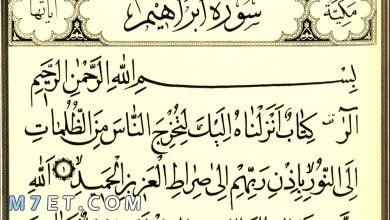 مكية سورة ابراهيم اياتها
بِسْمِ اللهِ الرَّحْمٰنِ الرَّحِيمِ
الٓرٰ كِتَابٌ اَنْزَلْنَاهُ اِلَيْكَ لِتُخْرِجَ النَّاسَ مِنَ الظُّلُمَاتِ
اِلَى النُّورِ بِاِذْنِ رَبِّهِمْ اِلٰى صِرَاطِ الْعَزِيزِ الْحَمِيدِ ۙ ١ اَللهِ
M7ET.COM